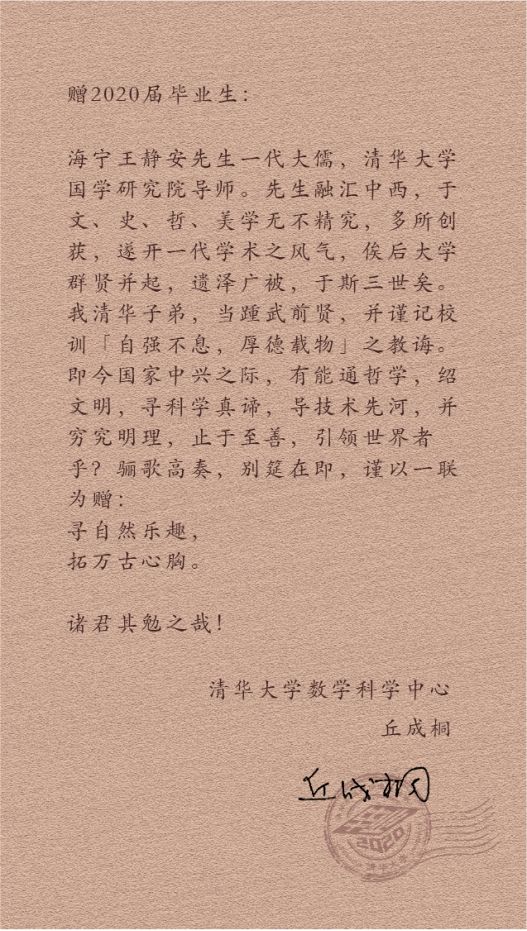 赠2020届毕业生：
海宁王静安先生一代大儒，清华大学
国学研究院导师。先生融汇中西，于
文、史、哲、美学无不精究，多所创
获，遂开一代学术之风气，俟后大学
群贤并起，遗泽广被，于斯三世矣。
我清华子弟，当踵武前贤，并谨记校
训「自强不息，厚德载物」之教诲。
即今国家中兴之际，有能通哲学，绍
文明，寻科学真谛，导技术先河，并
穷究明理，止于至善，引领世界者
乎？骊歌高奏，别筵在即，谨以一联
为赠：
寻自然乐趣，
拓万古心胸。
诸君其勉之哉！
清华大学数学科学中心
丘成桐
丘成桐
2020